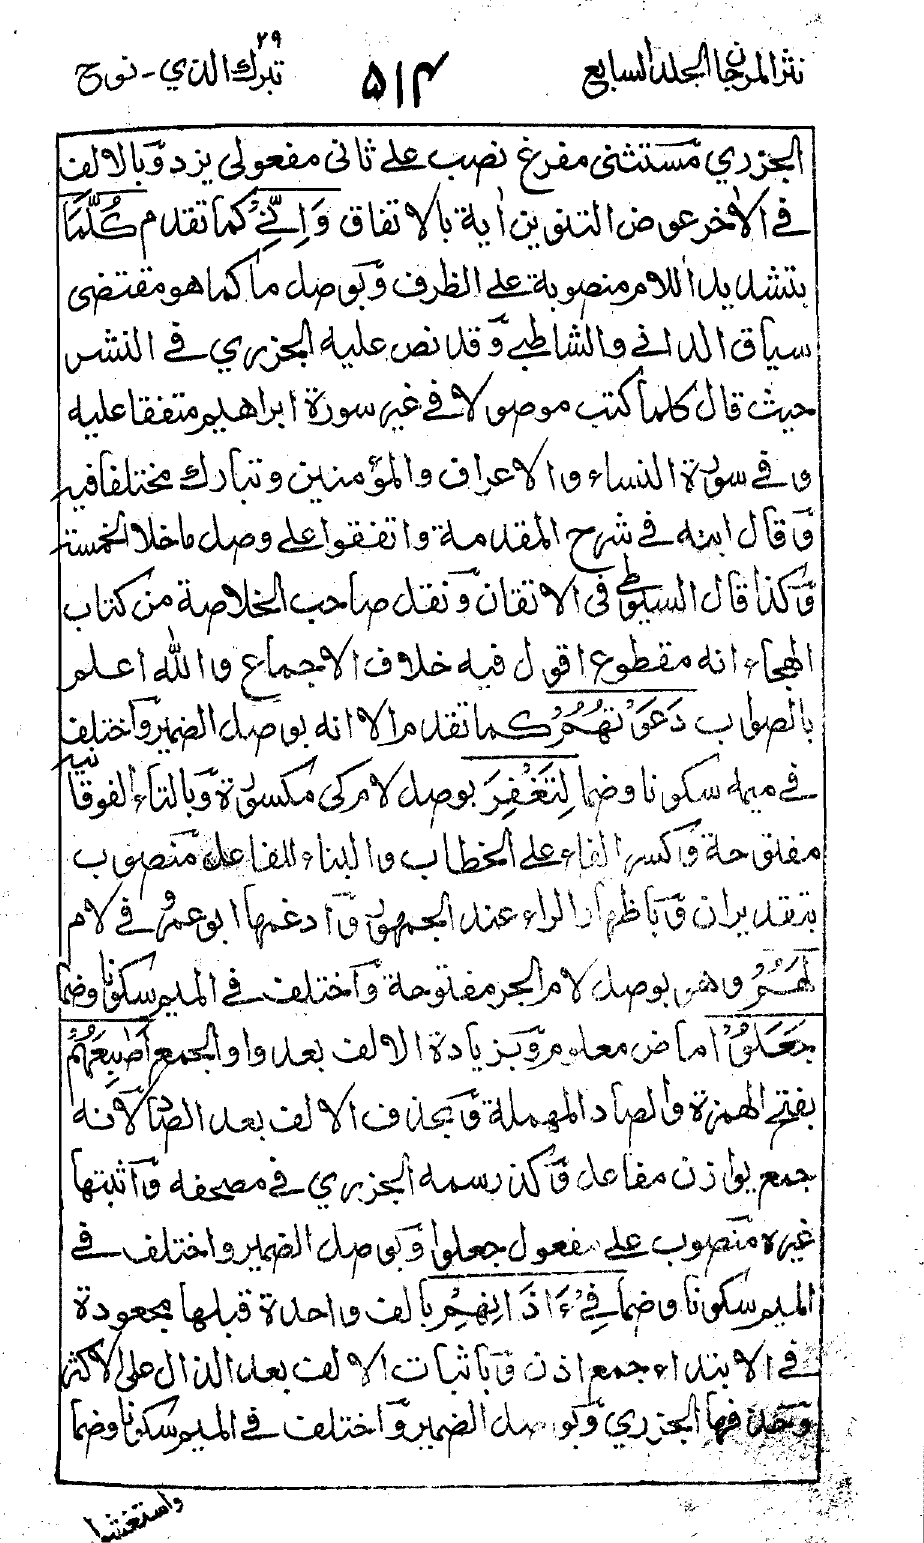 نثر المرجان المجلد السابع
٥١٤
٢٩
تبرك الذي - نوح
الجزري مستثنى مفرغ نصب على ثانى مفعولى يزد وبالالف
في الأخر عوض التنوين اية بالاتفاق وَاِنِّي كما تقدم كُلَّمَا
بتشديد اللام منصوبة على الظرف وبوصل ما كما هو مقتضى
سياق الداني والشاطبي وقد نص عليه الجزري في النشر
حيث قال كلما كتب موصولا في غير سورة ابراهيم متفقا عليه
و في سورة النساء والاعراف والمؤمنين وتبارك مختلفا فيه
وقال ابنه في شرح المقدمة واتفقوا على وصل ماخلا الخمسة
وكذا قال السيوطي فى الاتقان ونقل صاحب الخلاصة من كتاب
الهجاء انه مقطوع اقول فيه خلاف الاجماع والله اعلم
بالصواب دَعَوْتُهُمْ كما تقدم الا انه بوصل الضمير واختلف
في ميمه سكونا وضما لِتَغْفِرَ بوصل لام كى مكسورة وبالتاء الفوقانية
مفتوحة وكسر الفاء على الخطاب والبناء للفاعل منصوب
بتقدير ان وباظهار الراء عند الجمهور وادغمها ابو عمرو في لام
لَهُمْ وهو بوصل لام الجر مفتوحة واختلف في الميم سكونا وضما
جَعَلُوْا ماض معلوم وبزيادة الالف بعد واو الجمع اَصَابِعَهُمْ
بفتح الهمزة والصاد المهملة وبحذف الالف بعد الصاد لانه
جمع يوازن مفاعل وكذا رسمه الجزري في مصحفه واثبتها
غيره منصوب على مفعول جعلوا وبوصل الضمير واختلف في
الميم سكونا وضما فِيْ ءَاذَانِهِمْ بالف واحدة قبلها مجعودة
في الابتداء جمع اذن وباثبات الالف بعد الذال على الاكثر
وحذفها الجزري وبوصل الضمير واختلف في الميم سكونا وضما
واستغشوا